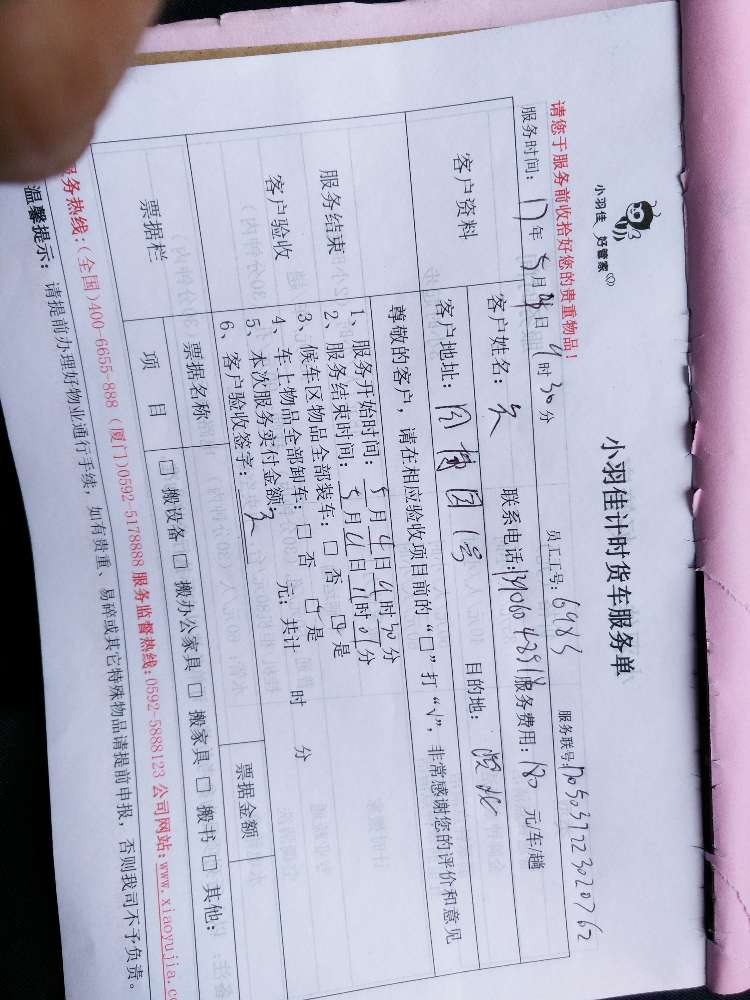 小羽佳 好管家
小羽佳计时货车服务单
请您于服务前收拾好您的贵重物品!
员工工号: 6983
服务联号:
服务时间: 17年5月 日9时30分
客户资料
客户姓名:
联系电话:
服务费用: 180 元/车/趟
客户地址:
目的地:
服务结束
客户验收
尊敬的客户, 请在相应验收项目前的“□”打“√”, 非常感谢您的评价和意见
1、服务开始时间: 5月4日9时30分
2、服务结束时间: 5月4日11时01分
3、候车区物品全部装车: □ 否 □ 是
4、车上物品全部卸车: □ 否 □ 是
5、本次服务实付金额: 元; 共计 时 分
6、客户验收签字:
票据栏
票据名称
票据金额
项 目
□ 搬设备 □ 搬办公家具 □ 搬家具 □ 搬书 □ 其他:
服务热线: (全国)400-6655-888 (厦门)0592-5178888 服务监督热线: 0592-5888123 公司网站: www.xiaoyujia.c
温馨提示: 请提前办理好物业通行手续, 如有贵重、易碎或其它特殊物品请提前申报, 否则我司不予负责。